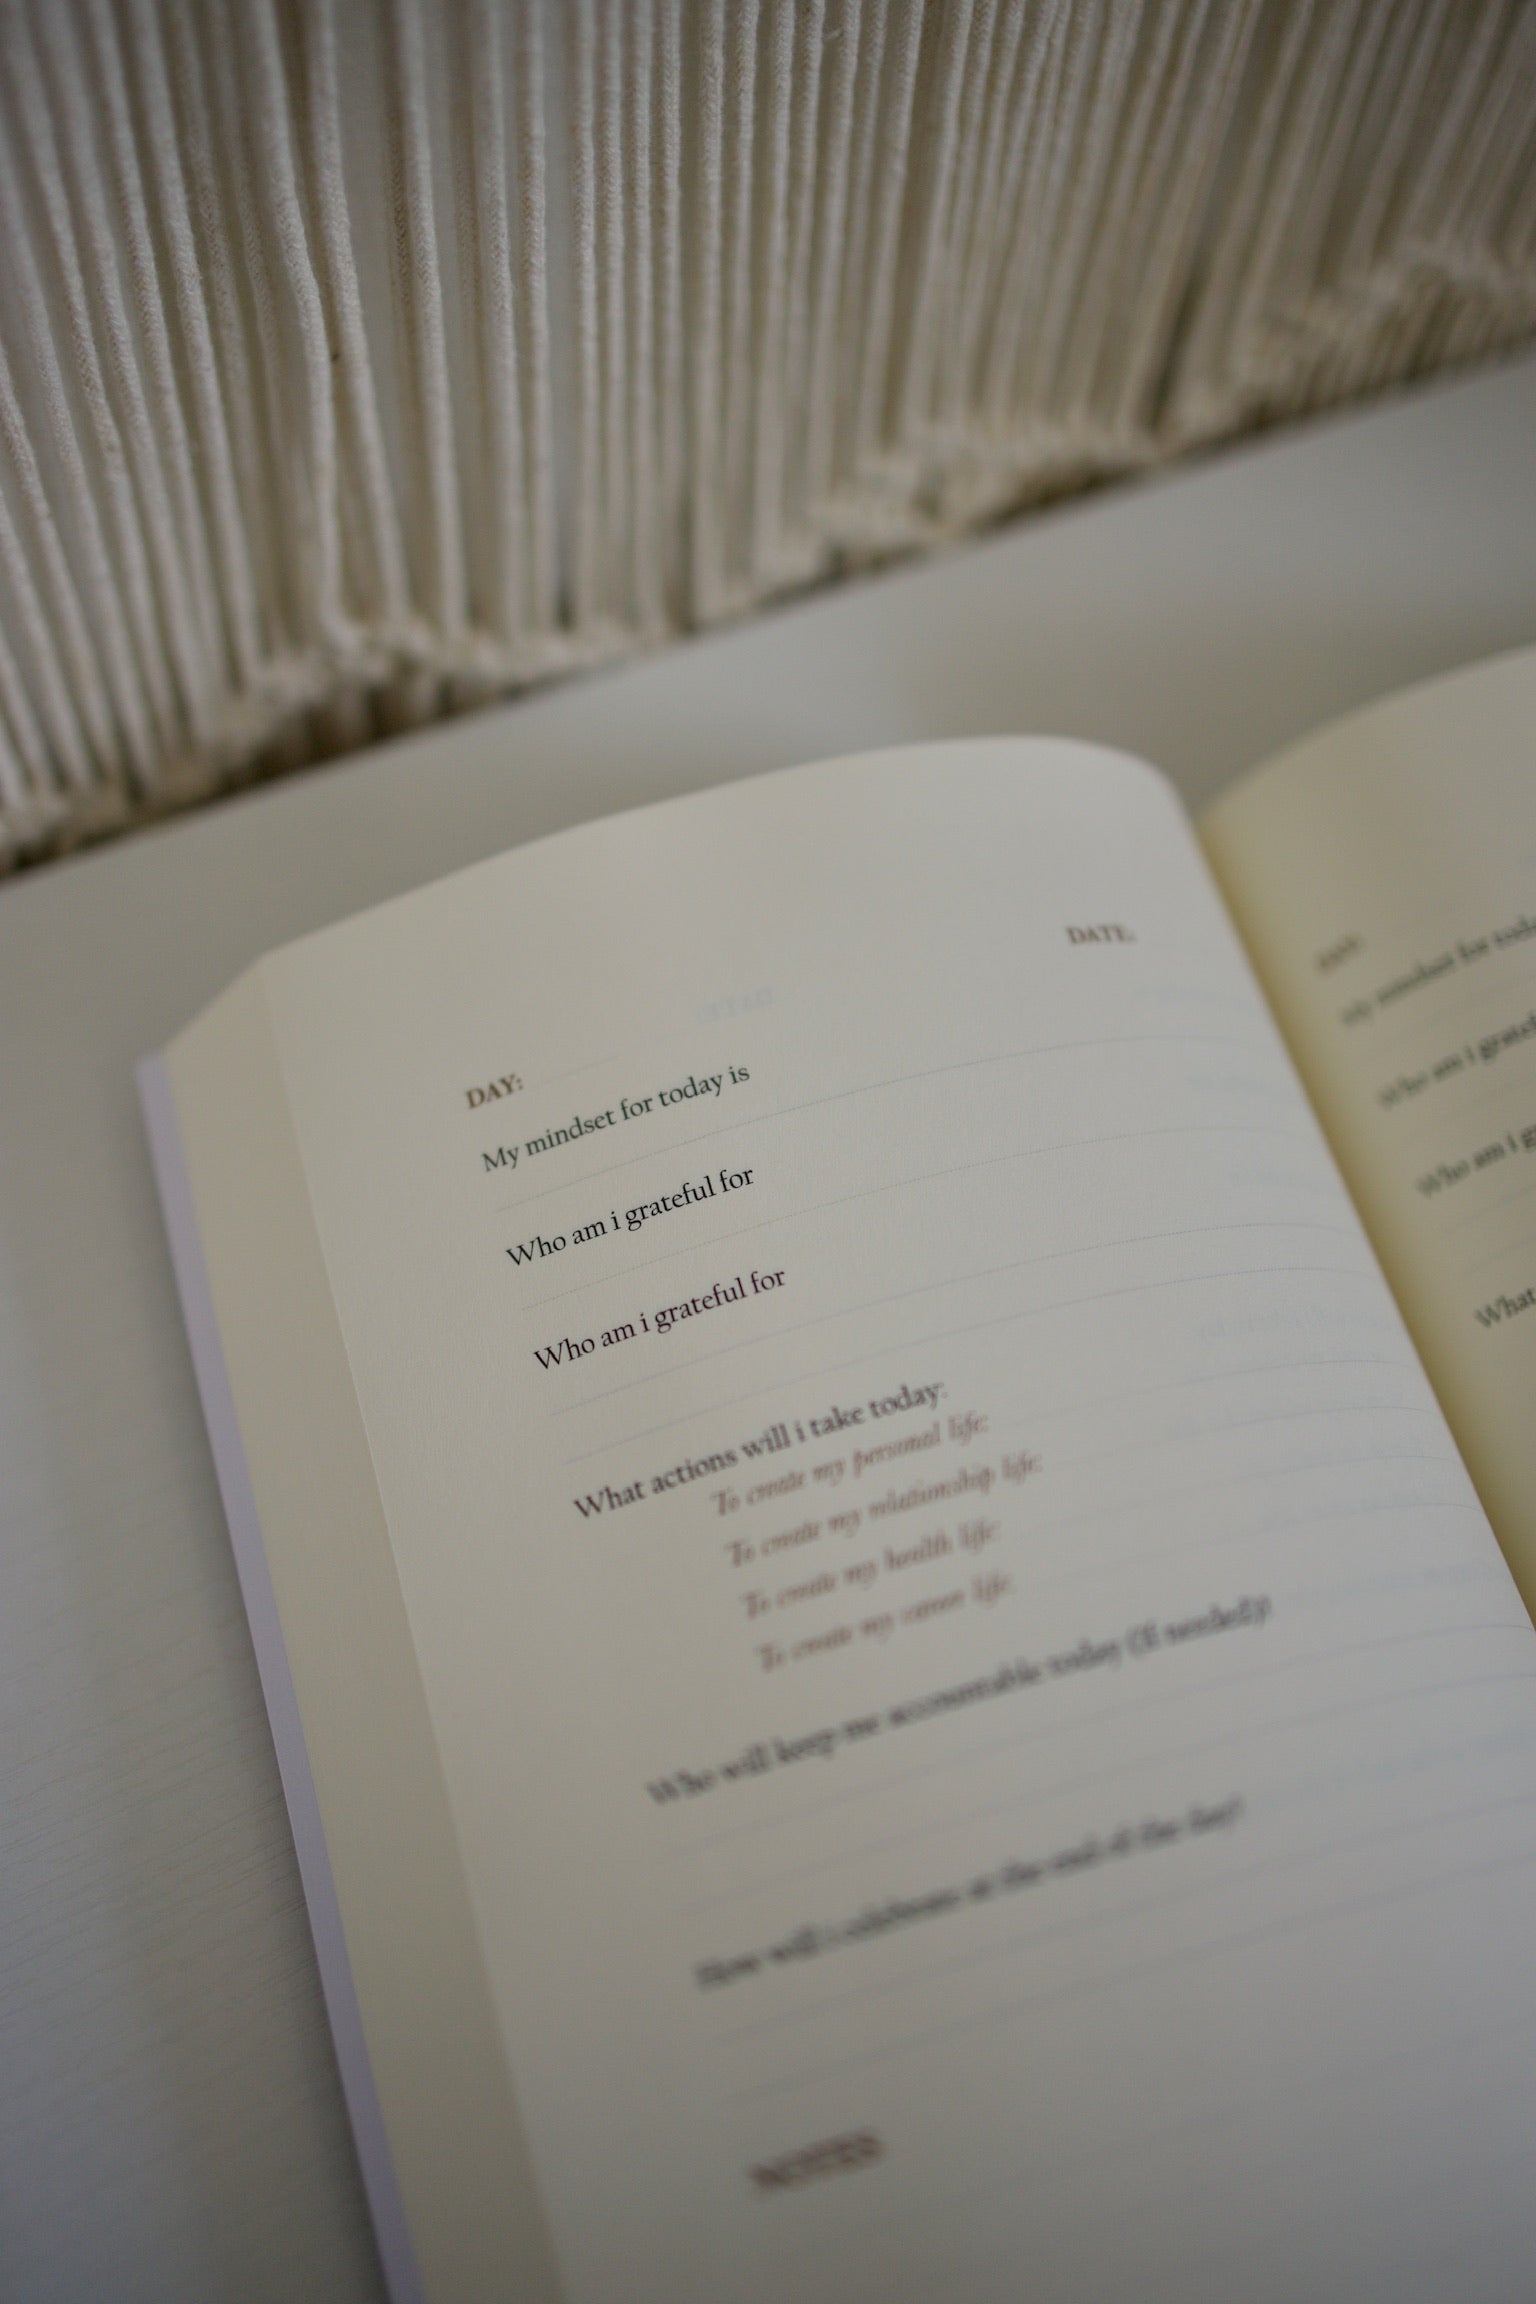 DATE:
DAY:
My mindset for today is
Who am i grateful for
Who am i grateful for
What actions will i take today:
To create my personal life:
To create my relationship life:
To create my health life:
To create my career life:
Who will keep me accountable today (if needed)?
How will i celebrate at the end of the day?
NOTES
My mindset for toda
Who am i gratef
Who am i g
What